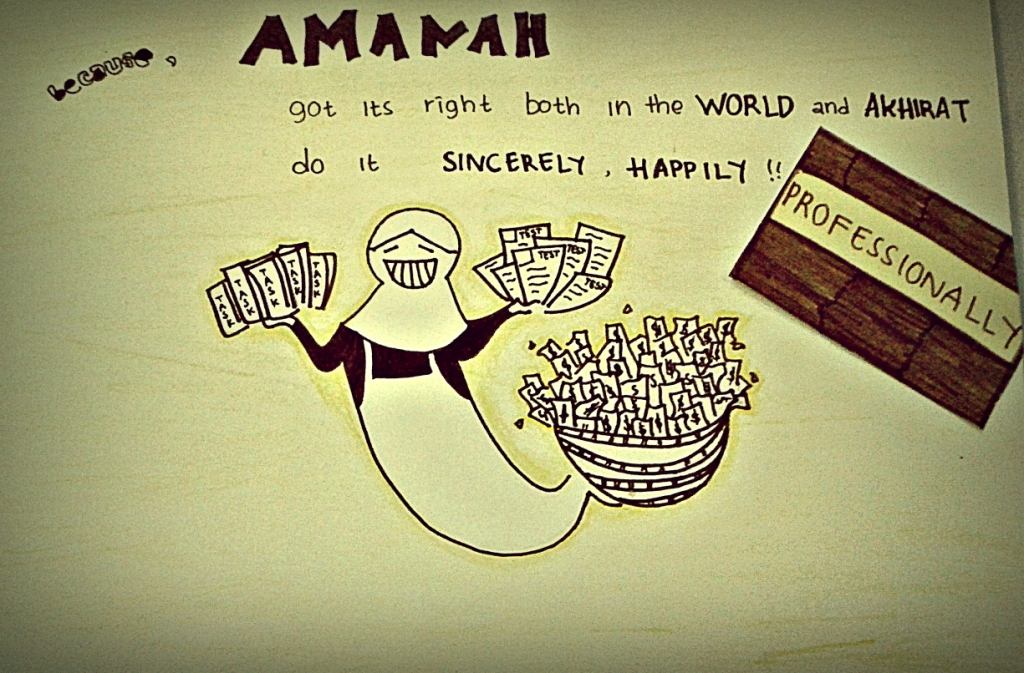 because,
AMANAH
got its right both in the WORLD and AKHIRAT
do it SINCERELY, HAPPILY !!
PROFESSIONALLY
TASK
TASK
TASK
TASK
TASK
TEST
TEST
TEST
TEST
$ $ $ $ $ $ $ $ $ $ $ $